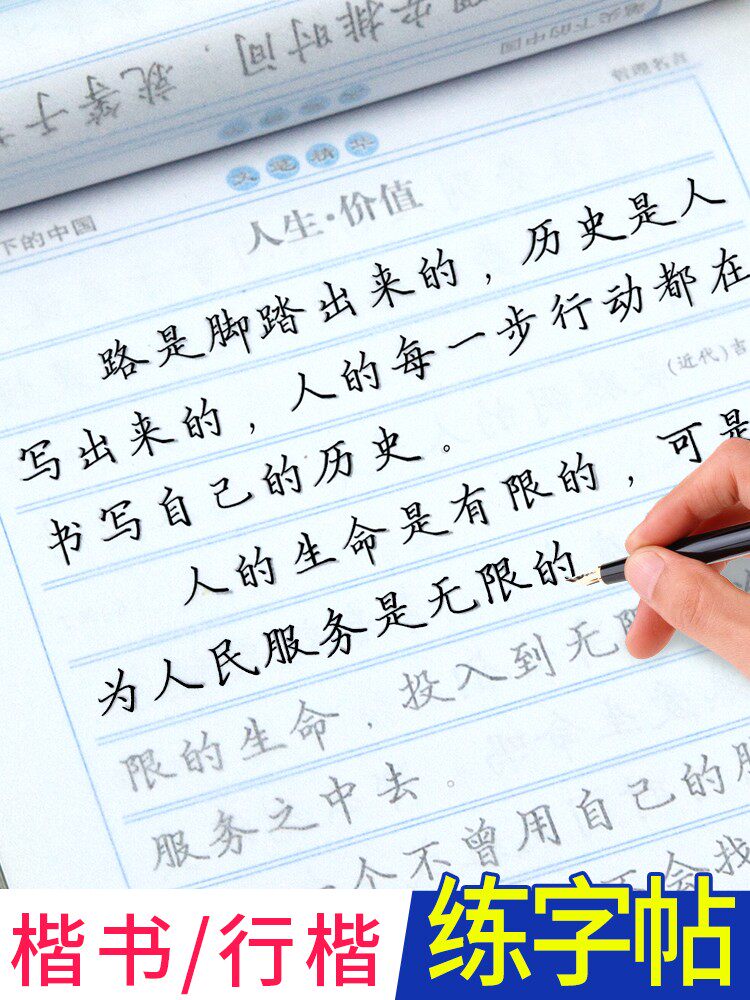 理安排时间，就等于
笔尖下的中国
管理名点
文笔精华
下的中国
人生·价值
路是脚踏出来的，历史是人
写出来的，人的每一步行动都在
（近代）吉
书写自己的历史。
人的生命是有限的，可是
为人民服务是无限的
限的生命，投入到无限
服务之中去。
个不曾用自己的脚
会找
楷书/行楷
练字帖